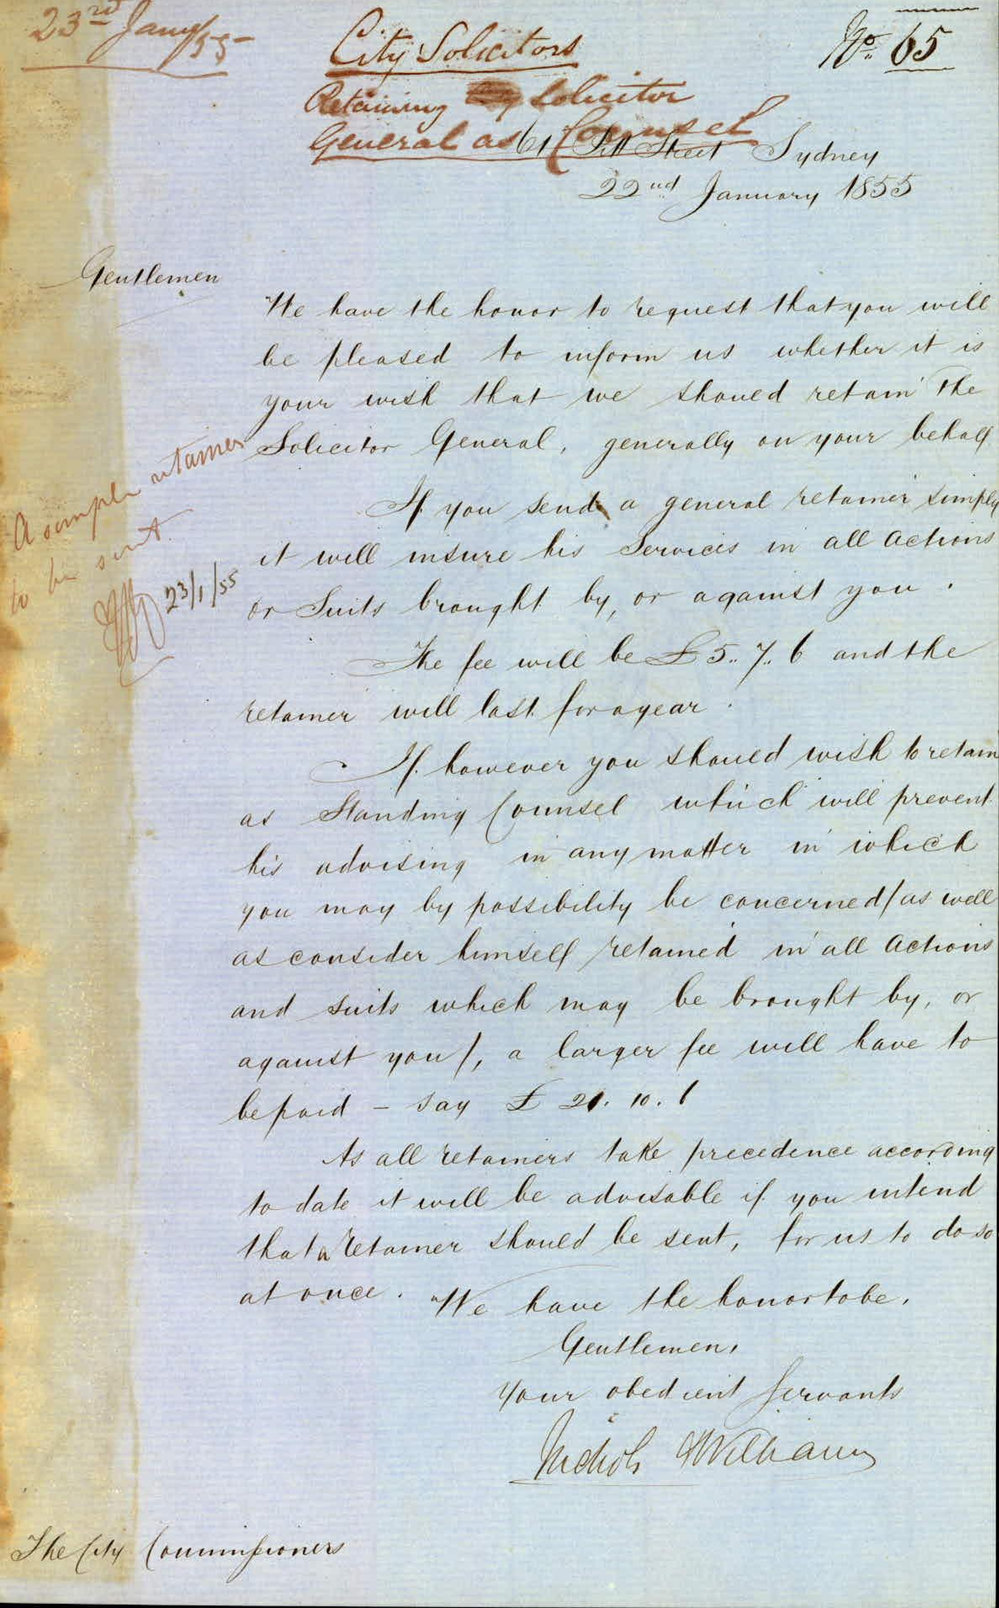 23rd Jany/55
No. 65
City Solicitors
Retaining Solicitor
General as Counsel
61 Pitt Street Sydney
22nd January 1855
Gentlemen
We have the honor to request that you will
be pleased to inform us whether it is
your wish that we should retain the
Solicitor General, generally on your behalf
If you send a general retainer simply
it will insure his Services in all Actions
or Suits brought by, or against you.
A simple retainer
to be sent.
23/1/55
The fee will be £5..7..6 and the
retainer will last for a year.
If however you should wish to retain
as Standing Counsel which will prevent
his advising in any matter in which
you may by possibility be concerned/as well
as consider himself retained in all Actions
and suits which may be brought by, or
against you/, a larger fee will have to
be paid - say £ 21. 10. 6
As all retainers take precedence according
to date it will be advisable if you intend
that a retainer should be sent, for us to do so
at once. We have the honor to be,
Gentlemen,
Your obedient Servants
Nichols & Williams
The City Commissioners